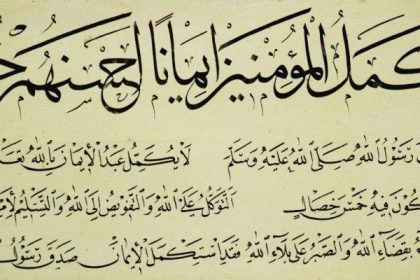 كمل المؤمنين إيمانا أحسنهم
رسول الله صلى الله عليه وسلم لا يكمل عبد الإيمان بالله
فيه خمس خصال التوكل على الله والتفويض إلى الله والتسليم
بقضاء الله والصبر على بلاء الله فقد استكمل الإيمان صدق رسول